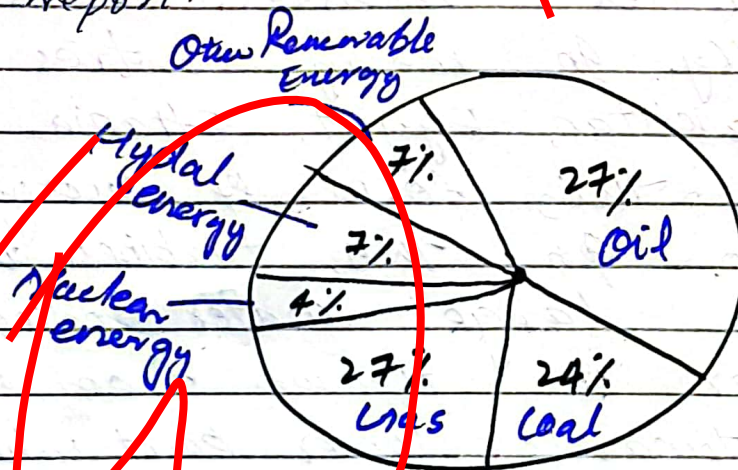 Other Renewable
Energy
Hydal
energy
Nuclear
energy
7%
27%
Oil
7%
4%
27%
Gas
24%
Coal